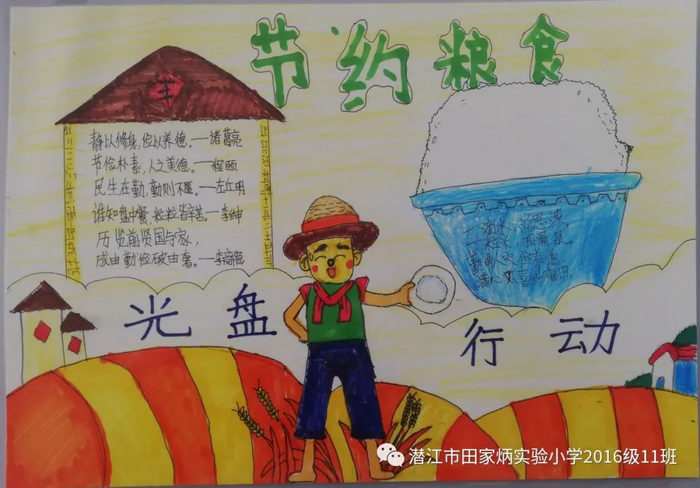 节约粮食
丰
静以修身,俭以养德。——诸葛亮
节俭朴素,人之美德。——程颐
民生在勤,勤则不匮。——左丘明
谁知盘中餐,粒粒皆辛苦。——李绅
历览前贤国与家,
成由勤俭破由奢。——李商隐
光盘
行动
潜江市田家炳实验小学2016级11班